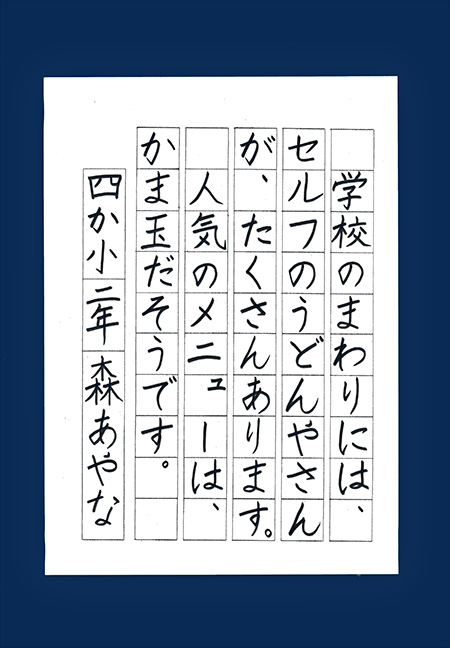 学校のまわりには、
セルフのうどんやさん
が、たくさんあります。
人気のメニューは、
かま玉だそうです。
四か小二年 森あやな